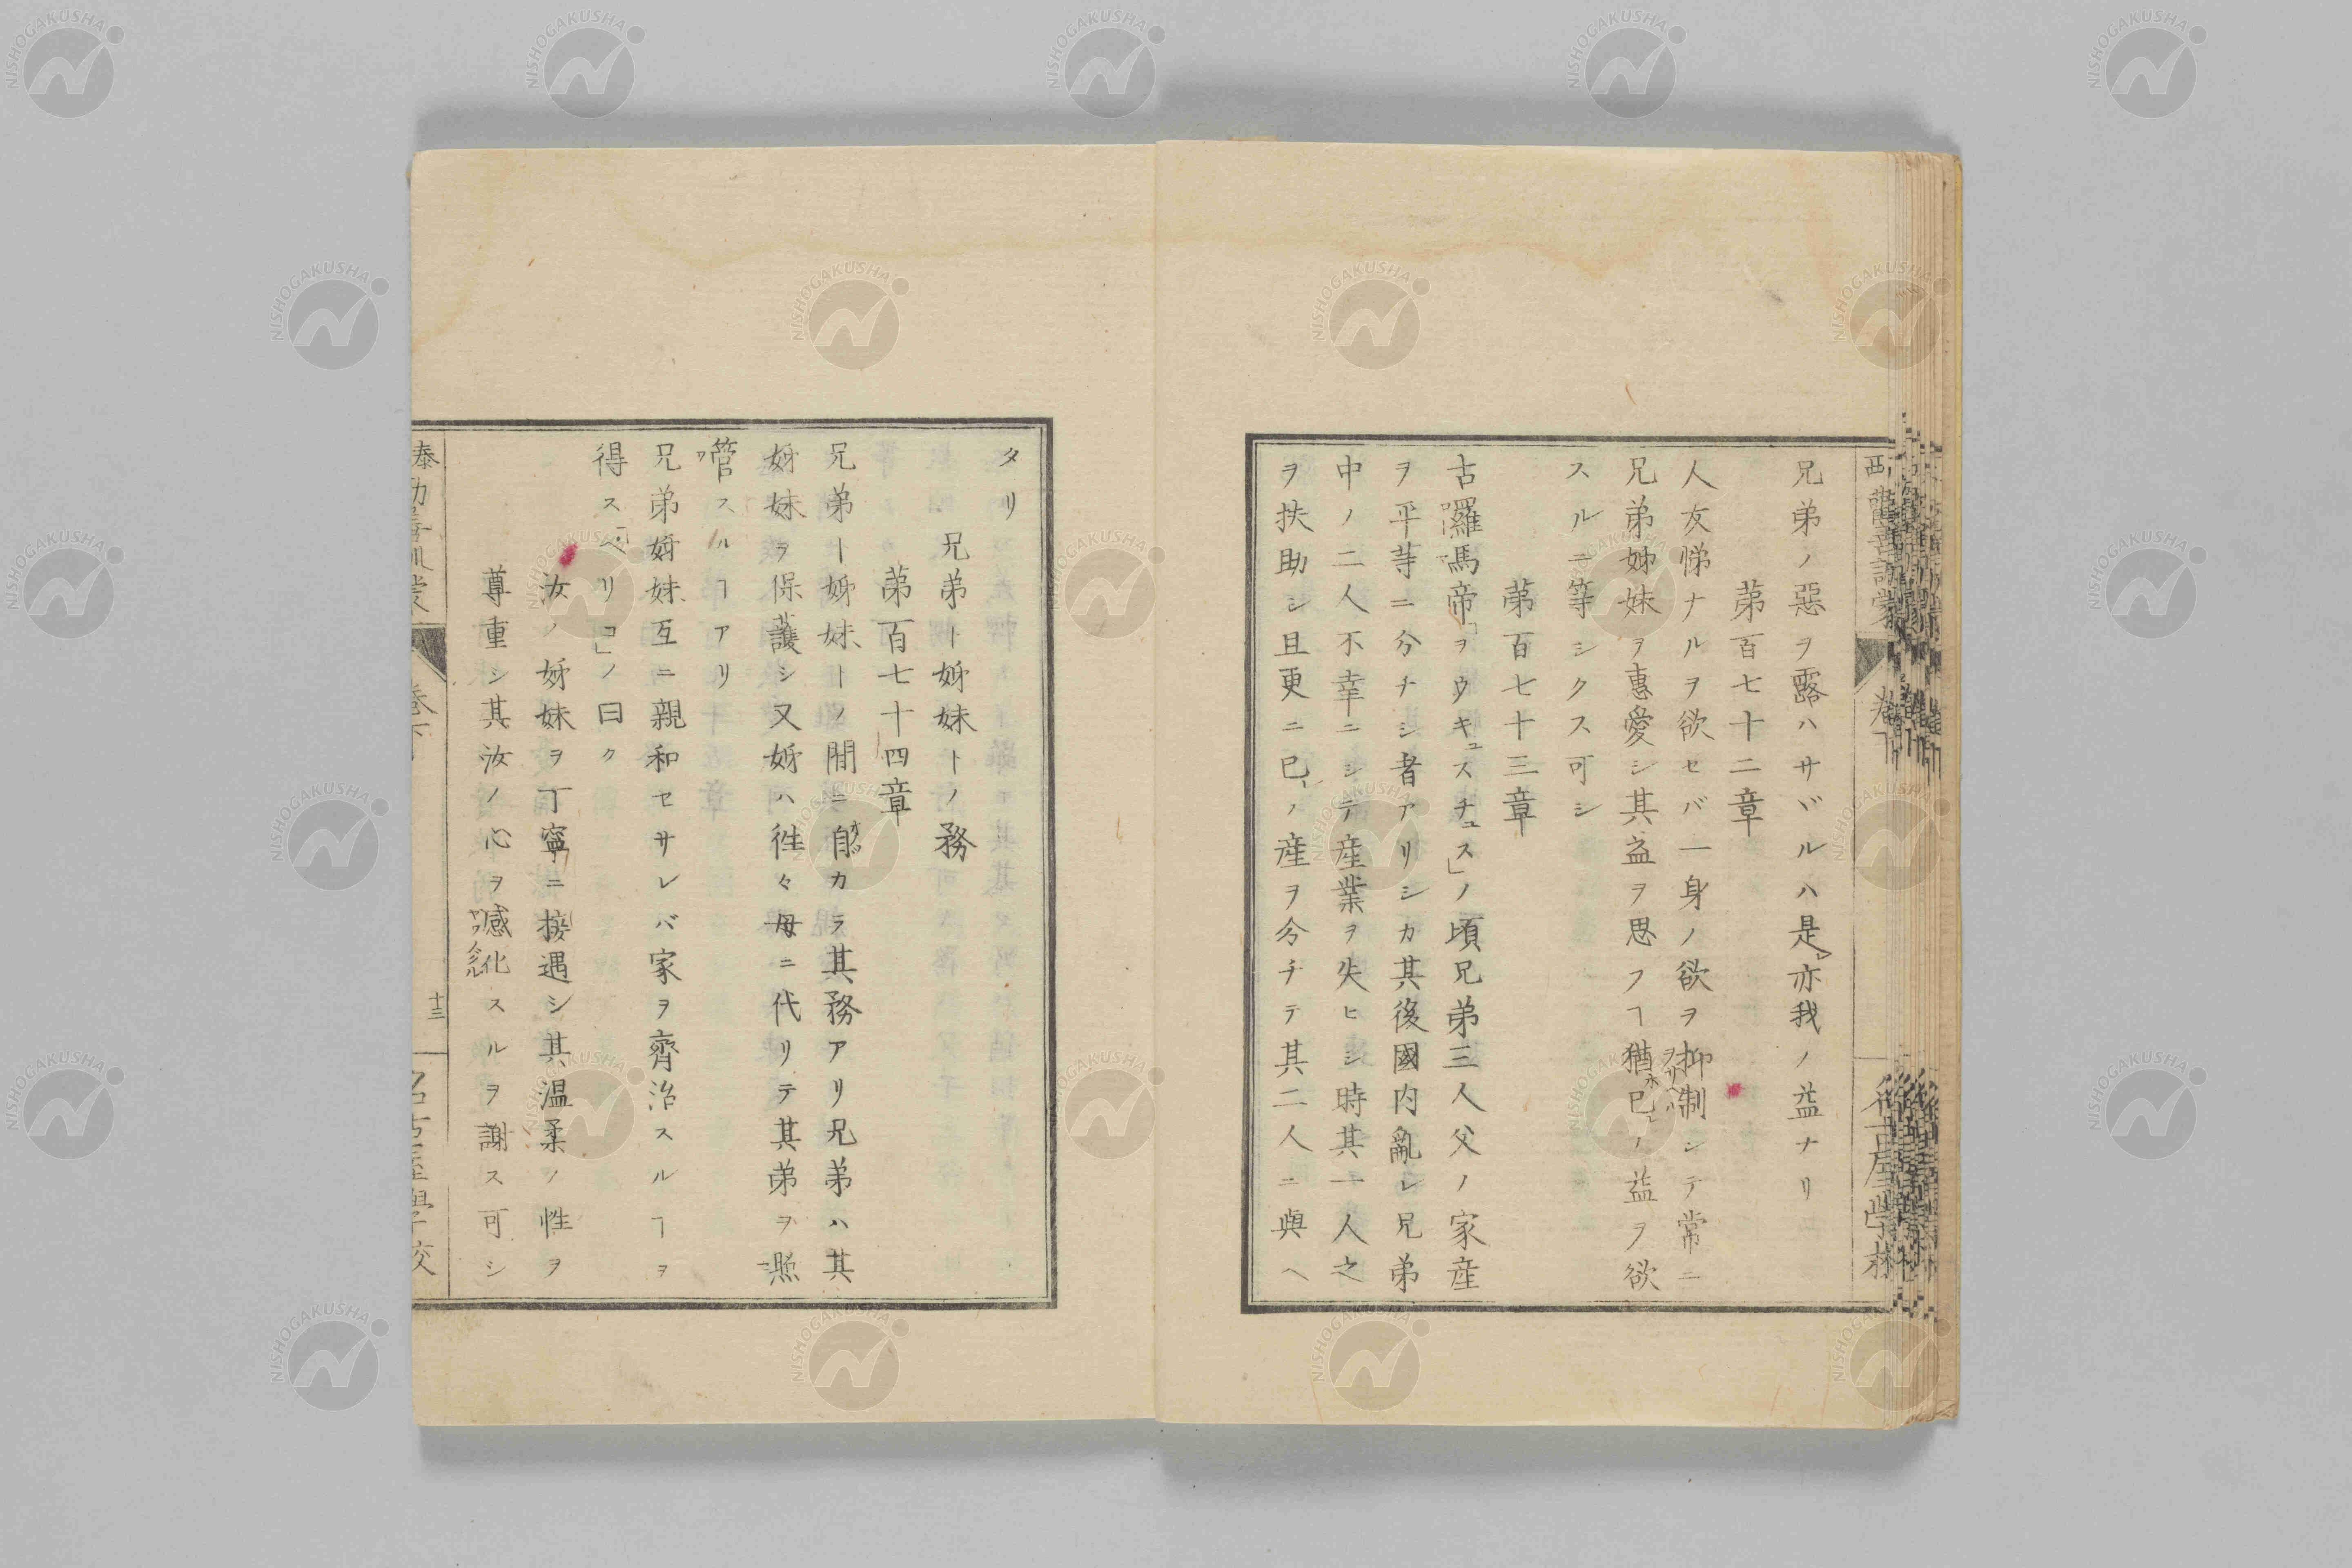 兄弟ノ惡ヲ露ハサヾルハ是亦我ノ益ナリ
苐百七十二章
人友悌ナルヲ欲セバ一身ノ欲ヲ抑制シテ常ニ
兄弟姊妹ヲ惠愛シ其益ヲ思フヿ猶己ノ益ヲ欲
スルニ等シクス可シ
苐百七十三章
古羅馬帝「ヲウキュスチュス」ノ頃兄弟三人父ノ家産
ヲ平等ニ分チシ者アリシカ其後國内亂レ兄弟
中ノ二人不幸ニシテ産業ヲ失ヒシ時其一人之
ヲ扶助シ且更ニ己ノ産ヲ分チテ其二人ニ與ヘ
タリ
兄弟ト姊妹トノ務
苐百七十四章
兄弟ト姊妹トノ間ニ自カラ其務アリ兄弟ハ其
姊妹ヲ保護シ又姊ハ徃々母ニ代リテ其弟ヲ照
管スルヿアリ
兄弟姊妹互ニ親和セサレバ家ヲ齊治スルヿヲ
得ス「ペリコ」ノ曰ク
汝ノ姊妹ヲ丁寧ニ接遇シ其温柔ノ性ヲ
尊重シ其汝ノ心ヲ感化スルヲ謝ス可シ
卷下
十三
名古屋學校
NISHOGAKUSHA